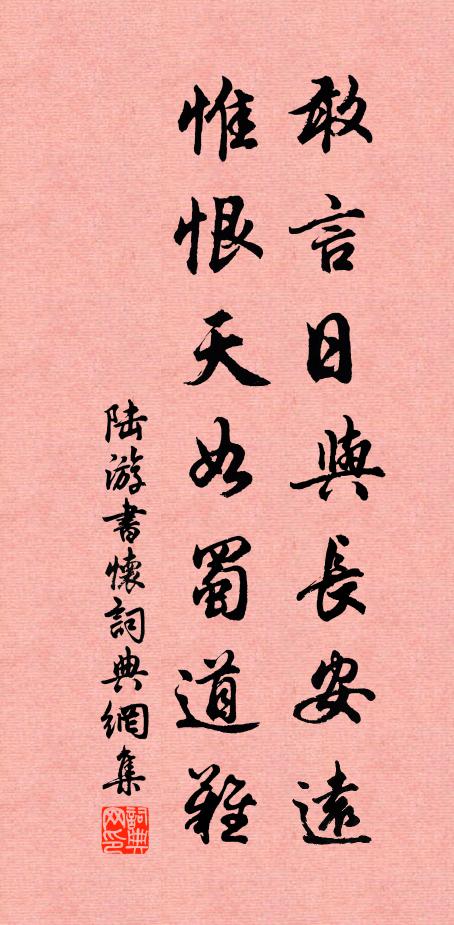 敢言日與長安遠
惟恨天如蜀道難
陸游書懷詞典網集
詞典網印